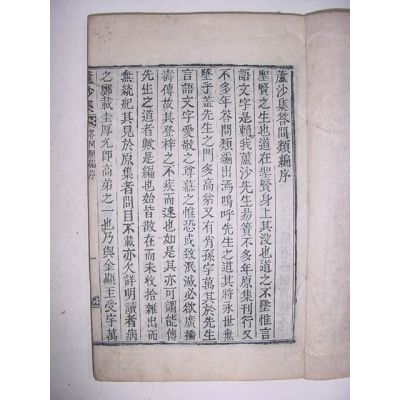 蘆沙集答問類編序
聖賢之生也道在聖賢身上其沒也道之不墜惟言
語文字是賴我蘆沙先生易簀不多年原集刊行又
不多年答問類編出焉嗚呼先生之道其將永世無
墜乎蓋先生之門多高弟又有肖孫字萬其於先生
言語文字愛敬之尊慕之惟恐或致泯滅必欲廣播
壽傳故其登梓之不疾而速也如是其亦可謂能傳
先生之道者歟是編也始皆散在而未收拾雜出而
無統紀其見於原集者問目不載亦欠詳明讀者病
之鄭載圭厚允卽高弟之一也乃與金顯玉受字萬
蘆沙集 答問類編序 一